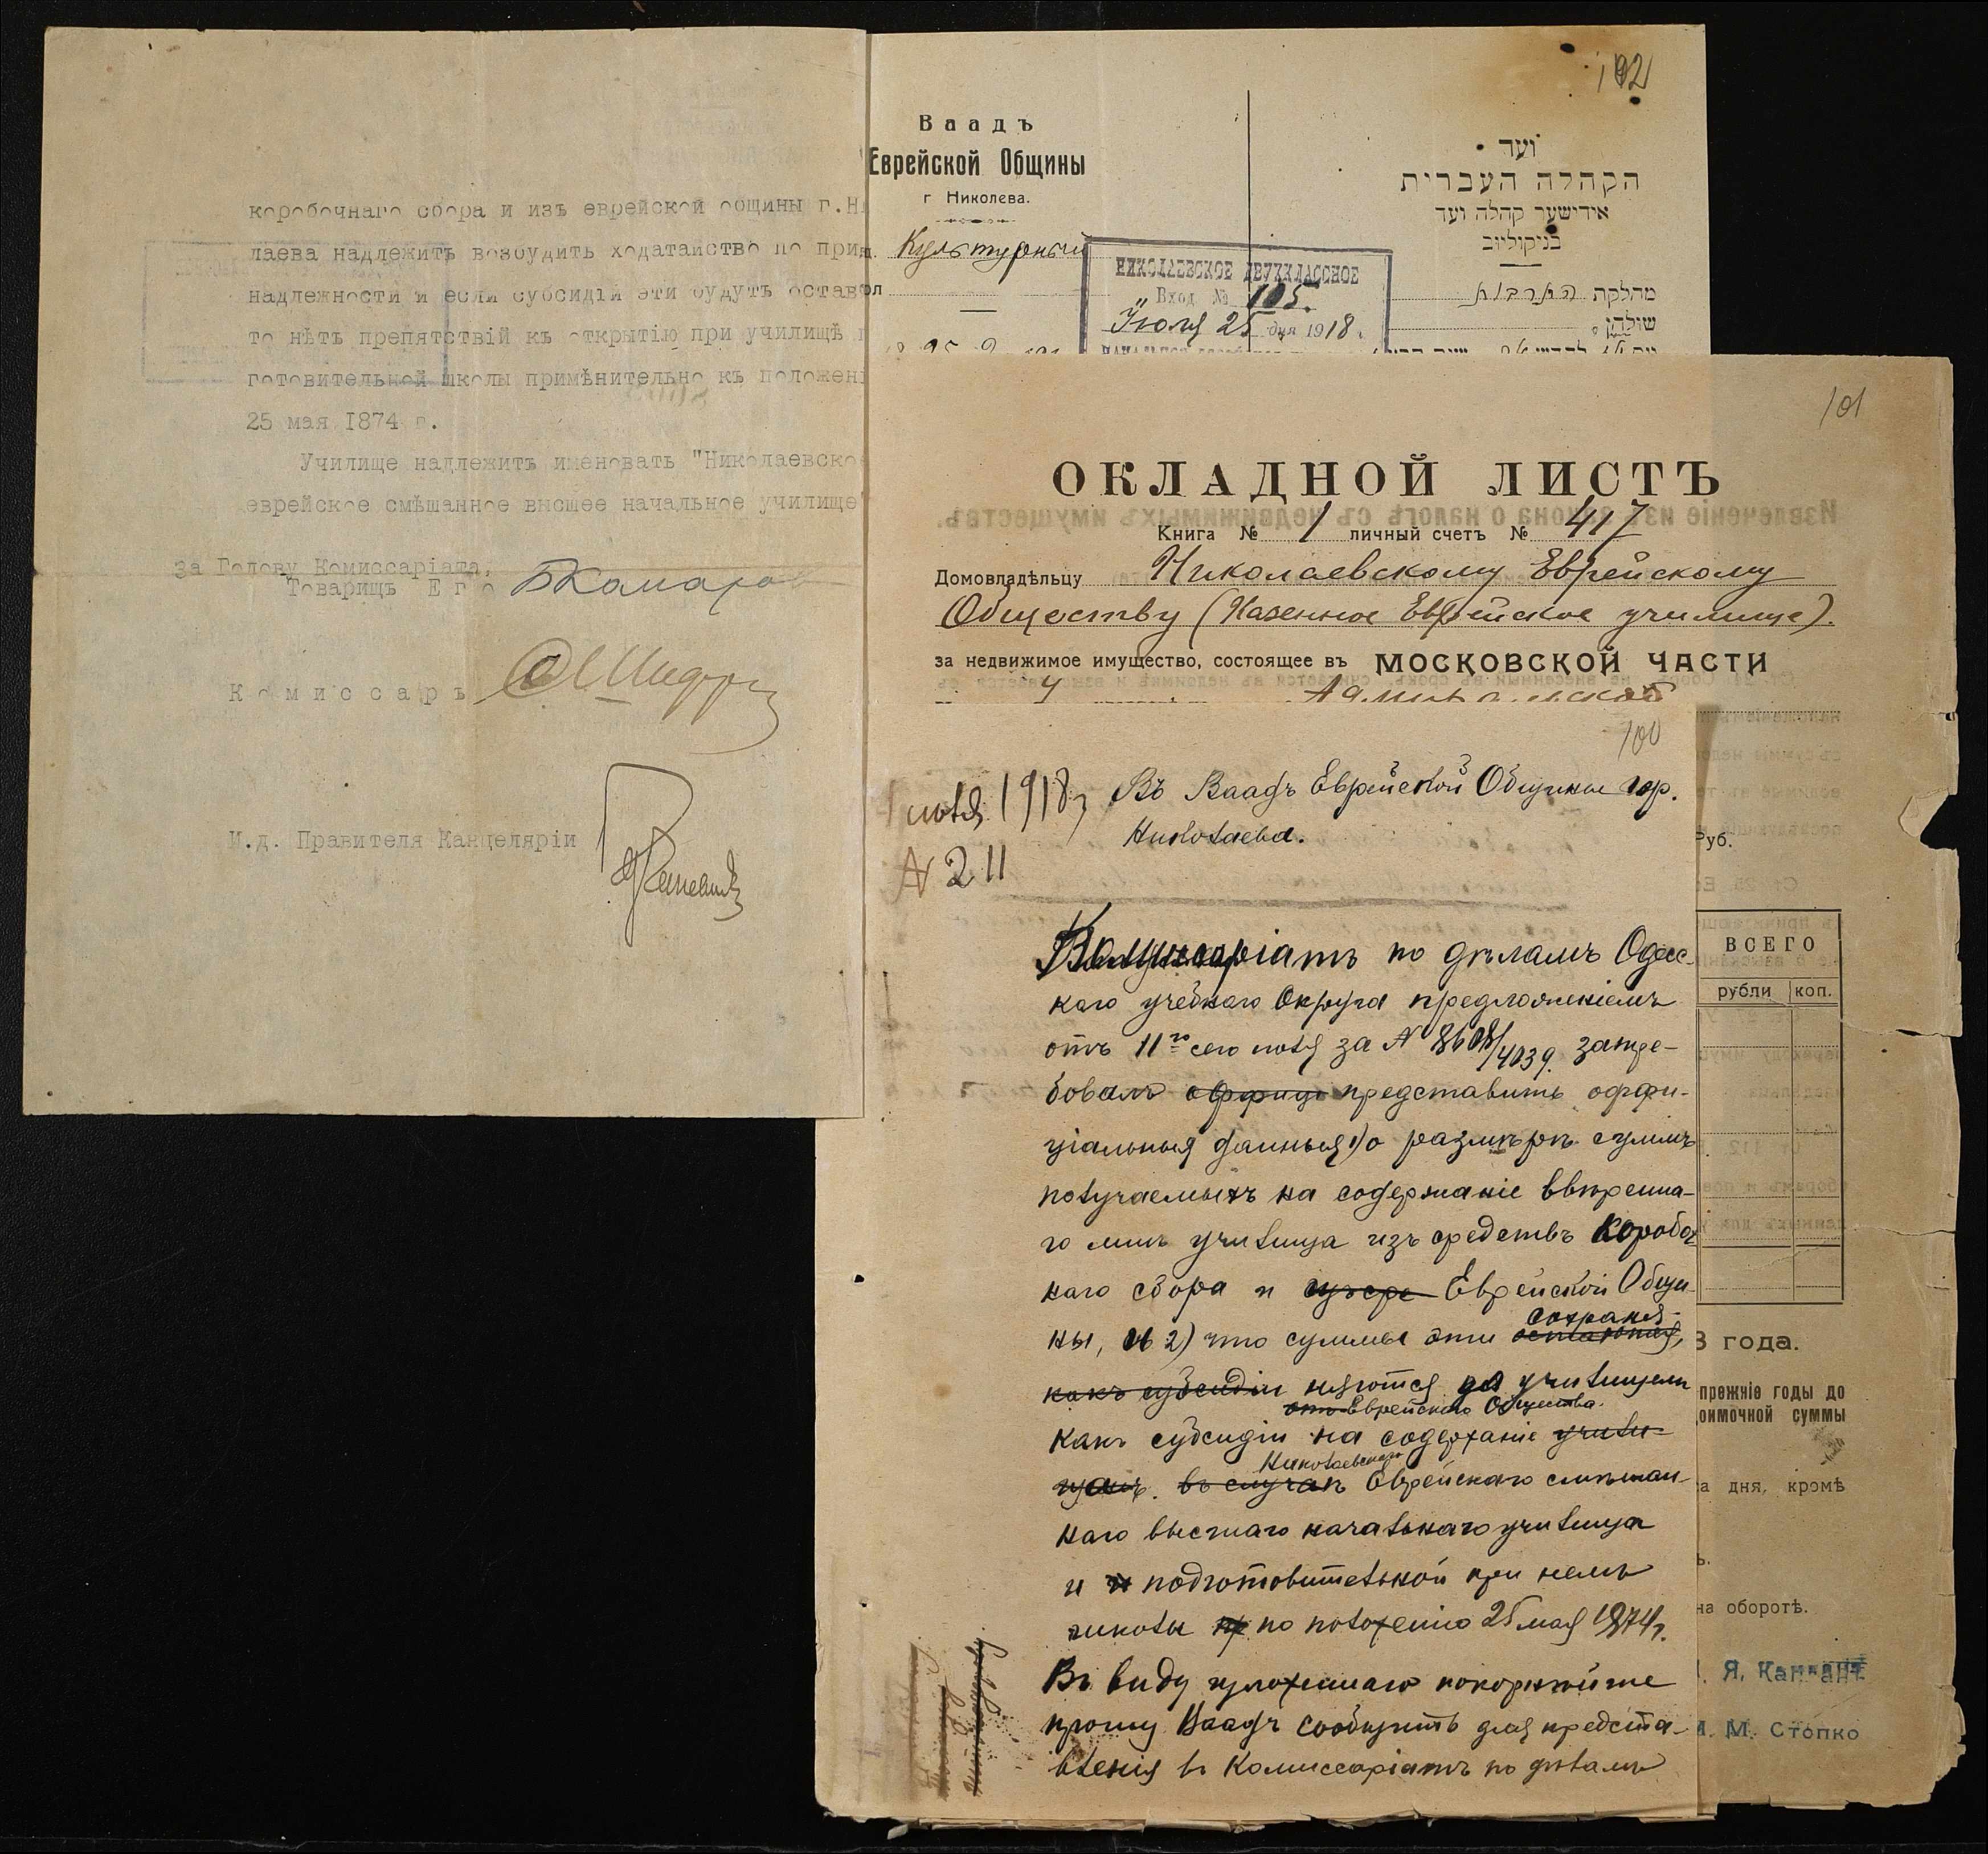 коробочнаго сбора и изъ еврейской общины г.Н
лаева надлежитъ возбудить ходатайство по прин
надлежности и если субсидіи эти будутъ остав
то нѣтъ препятствій къ открытію при училищѣ п
готовительной школы примѣнительно къ положен
25 мая 1874 г.
Училище надлежитъ именовать "Николаевско
еврейское смѣшанное высшее начальное училище"
За Голову Комиссаріата,
Товарищъ Его
Комиссаръ
И.д. Правителя Канцеляріи
102
Ваадъ
Еврейской Общины
г Николева.
Культурный
ועד
הקהלה העברית
אידישער קהלה ועד
בניקולייוב
מחלקת התרבות
שולחן
НИКОЛАЕВСКОЕ ДВУХКЛАССНОЕ
Вход № 105.
Июля 25 дня 1918 г.
101
ОКЛАДНОЙ ЛИСТЪ
Книга № 1 личный счетъ № 417
Домовладѣльцу Николаевскому Еврейскому
Обществу (Казенное Еврейское училище).
за недвижимое имущество, состоящее въ МОСКОВСКОЙ ЧАСТИ
Руб.
ВСЕГО
рубли коп.
8 года.
прежніе годы до
оимочной суммы
а дня, кромѣ
ъ.
на оборотѣ.
Я. Кантант
М. Стопко
100
іюля 1918 г
№ 211
Въ Ваадъ Еврейской Общины гор.
Николаева.
Комиссаріатъ по дѣламъ Одес-
каго учебнаго Округа предложеніемъ
отъ 11го сего іюля за № 8608/4039. затре-
бовалъ оффиці представить оффи-
ціальныя данныя 1) о размѣрѣ суммъ
получаемыхъ на содержаніе ввѣренна-
го мнѣ училища изъ средствъ короboч
наго сбора и Еврейской Общи-
ны, и 2) что суммы эти остаются, сохраня-
какъ субсидіи няются за училищемъ
отъ Еврейскаго Общества.
какъ субсидіи на содержаніе учили-
ща. въ случаѣ Николаевскаго Еврейскаго смѣшан-
наго высшаго начальнаго училища
и подготовительной при немъ
школы по положенію 25 мая 1874 г.
Въ виду изложеннаго покорнѣйше
прошу Ваадъ сообщить для предста-
вленія въ Комиссаріатъ по дѣламъ